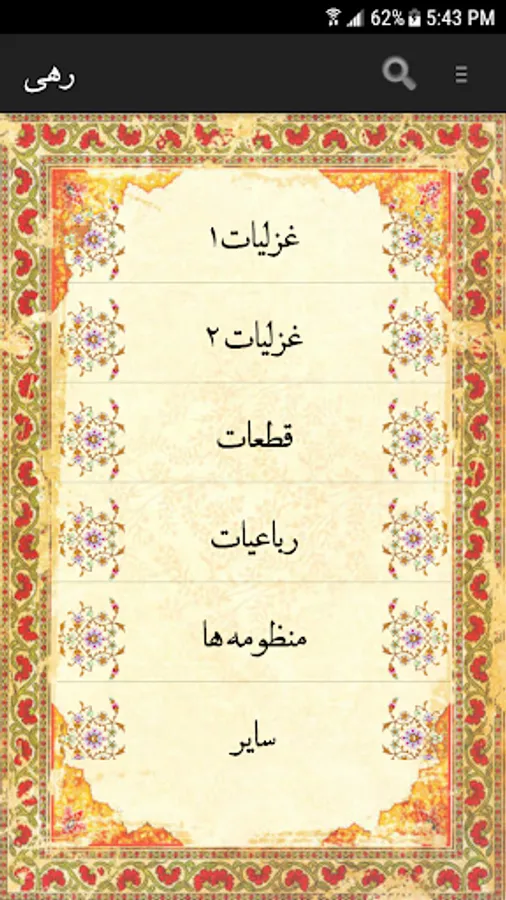 62% 5:43 PM
رهی
غزلیات۱
غزلیات۲
قطعات
رباعیات
منظومه‌ها
سایر